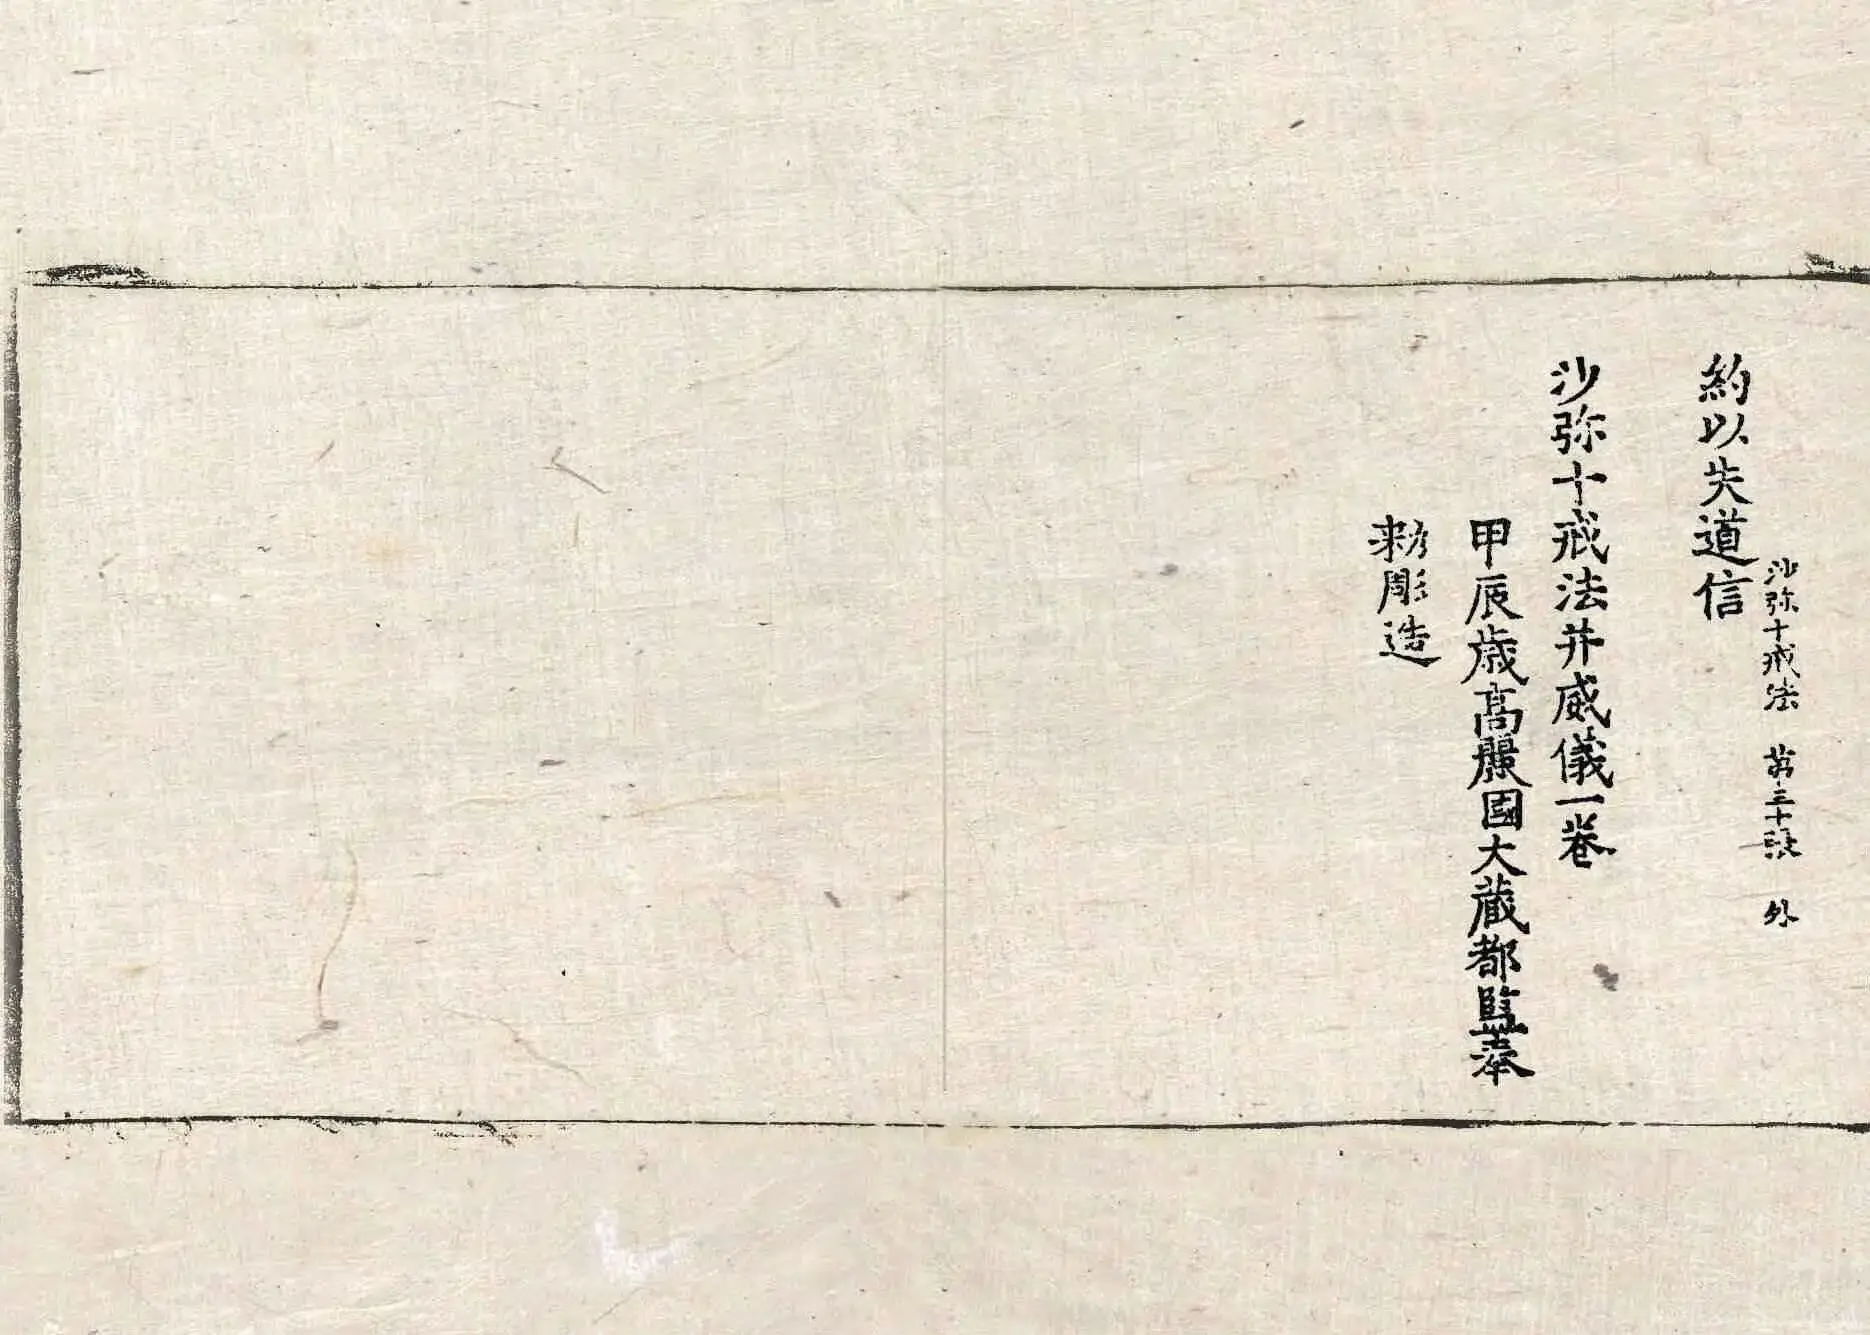 沙弥十戒法 苐三十張 外
約以失道信
沙弥十戒法并威儀一卷
甲辰歳高麗國大藏都監奉
勑彫造